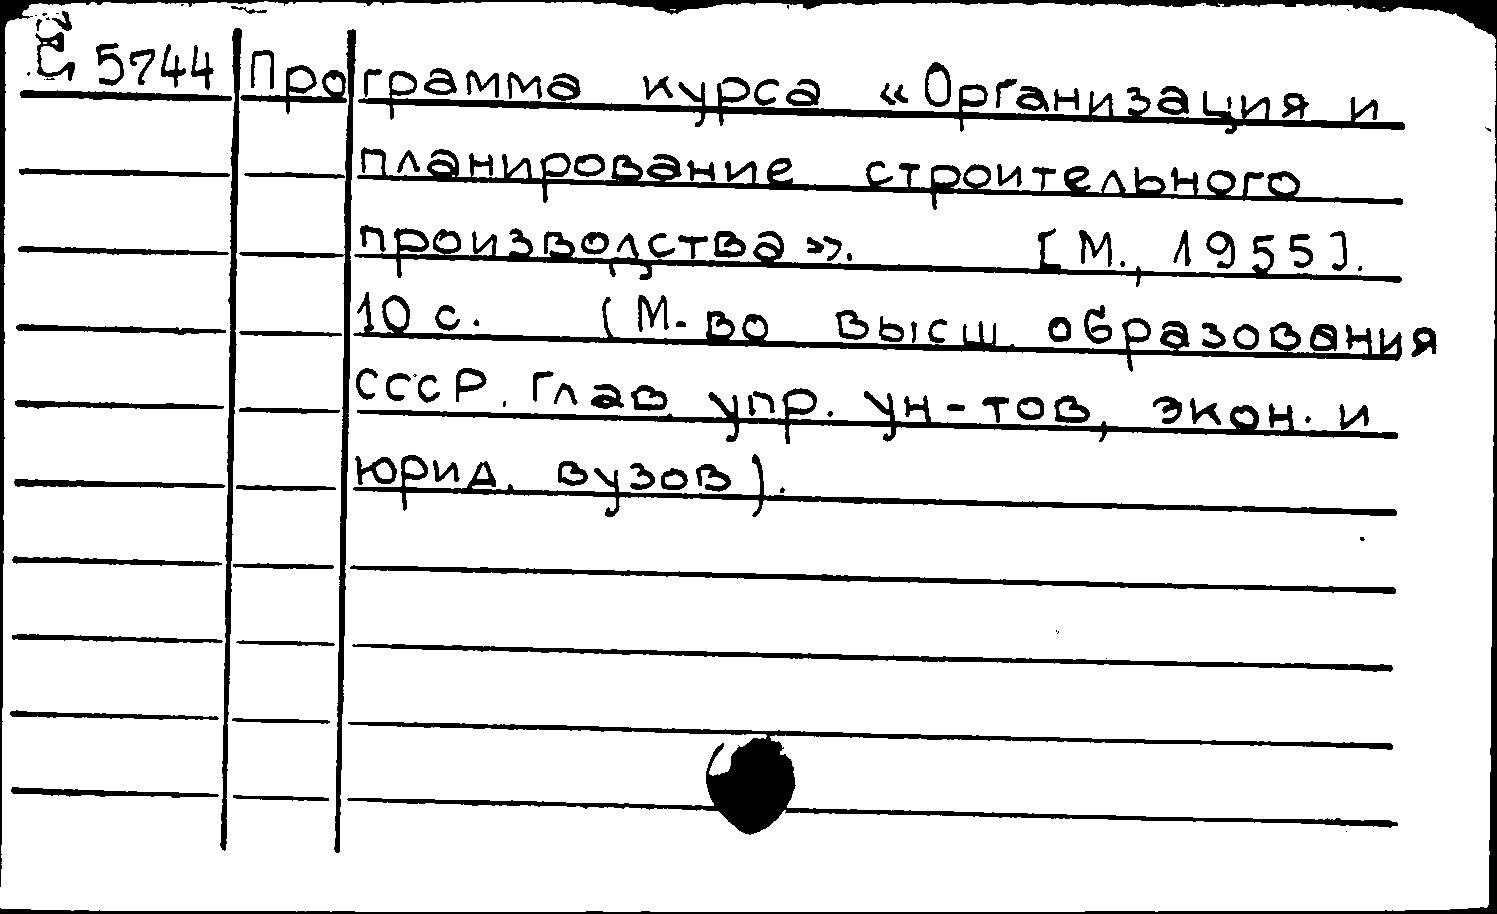 5744 Программа курса «Организация и
планирование строительного
производства». [М., 1955].
10 с. (М-во высш. образования
СССР. Глав. упр. ун-тов, экон. и
юрид. вузов).